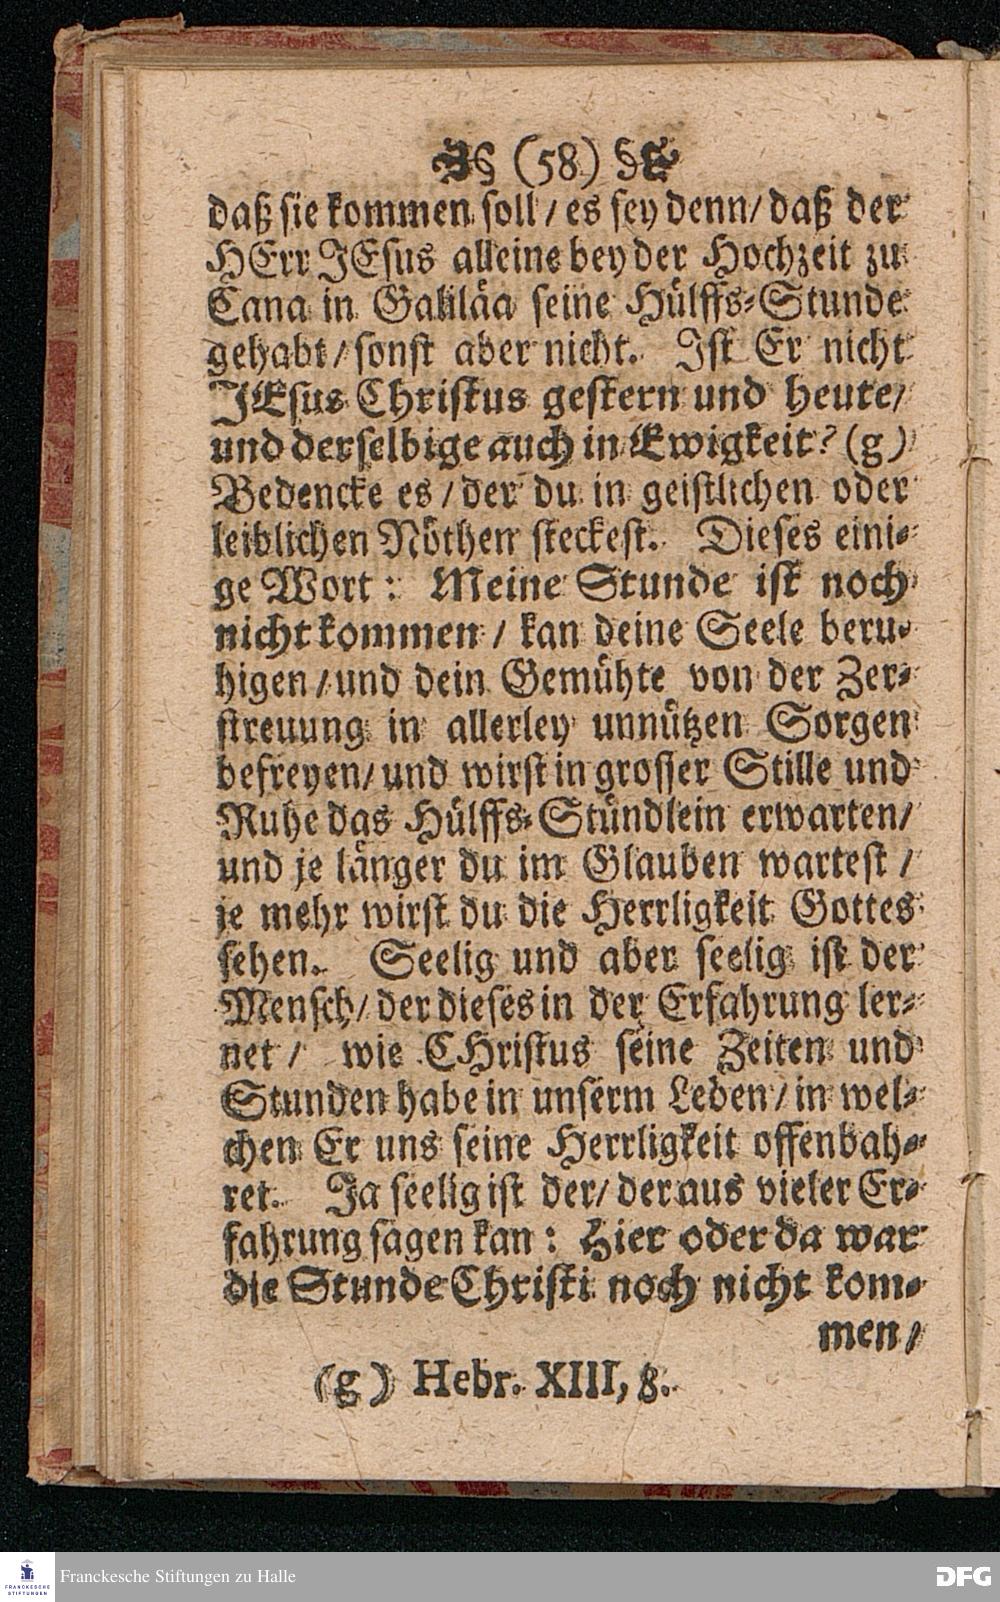 (58)
daß sie kommen soll / es sey denn / daß der
HErr JEsus alleine bey der Hochzeit zu
Cana in Galiläa seine Hülffs-Stunde
gehabt / sonst aber nicht. Ist Er nicht
JEsus Christus gestern und heute /
und derselbige auch in Ewigkeit? (g)
Bedencke es / der du in geistlichen oder
leiblichen Nöthen steckest. Dieses eini-
ge Wort: Meine Stunde ist noch
nicht kommen / kan deine Seele beru-
higen / und dein Gemühte von der Zer-
streuung in allerley unnützen Sorgen
befreyen / und wirst in grosser Stille und
Ruhe das Hülffs-Stündlein erwarten /
und je länger du im Glauben wartest /
je mehr wirst du die Herrligkeit Gottes
sehen. Seelig und aber seelig ist der
Mensch / der dieses in der Erfahrung ler-
net / wie CHristus seine Zeiten und
Stunden habe in unserm Leben / in wel-
chen Er uns seine Herrligkeit offenbah-
ret. Ja seelig ist der / der aus vieler Er-
fahrung sagen kan: Hier oder da war
die Stunde Christi noch nicht kom-
men /
(g) Hebr. XIII, 8.
FRANCKESCHE
STIFTUNGEN
Franckesche Stiftungen zu Halle
DFG